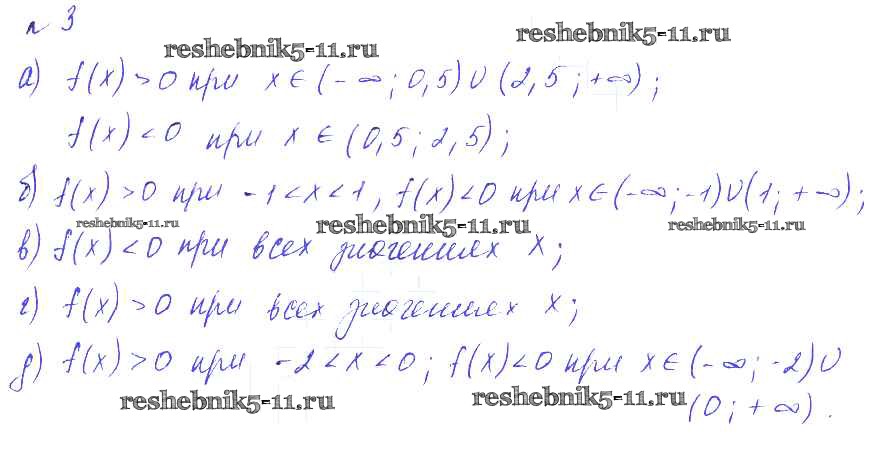 № 3
reshebnik5-11.ru reshebnik5-11.ru
а) f(x) > 0 при x ∈ (-∞; 0,5) ∪ (2,5; +∞);
f(x) < 0 при x ∈ (0,5; 2,5);
б) f(x) > 0 при -1 < x < 1, f(x) < 0 при x ∈ (-∞; -1) ∪ (1; +∞);
reshebnik5-11.ru reshebnik5-11.ru reshebnik5-11.ru
в) f(x) < 0 при всех значениях x;
г) f(x) > 0 при всех значениях x;
д) f(x) > 0 при -2 < x < 0; f(x) < 0 при x ∈ (-∞; -2) ∪
reshebnik5-11.ru reshebnik5-11.ru
(0; +∞).